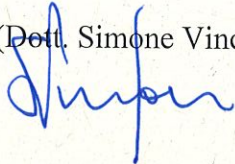 (Dott. Simone Vinc